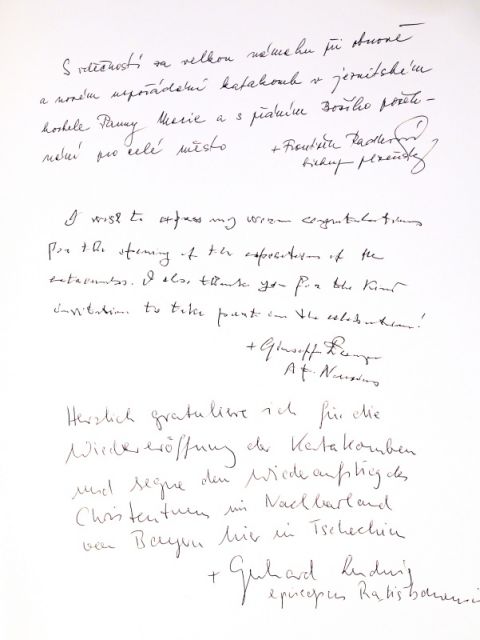 S vděčností za velkou námahu při obnově
a novém uspořádání katakomb v jezuitském
kostele Panny Marie a s přáním Božího požeh-
nání pro celé město + František Radkovský
biskup plzeňský
I wish to express my warm congratulations
for the opening of the exposition of the
catacombs. I also thank you for the kind
invitation to take part in the celebration!
+ Giuseppe
Ap. Nunzius
Herzlich gratuliere ich für die
Wiedereröffnung der Katakomben
und segne den Wiederaufstieg des
Christentums im Nachbarland
von Bayern hier in Tschechien
+ Gerhard Ludwig
episcopus Ratisbonensis